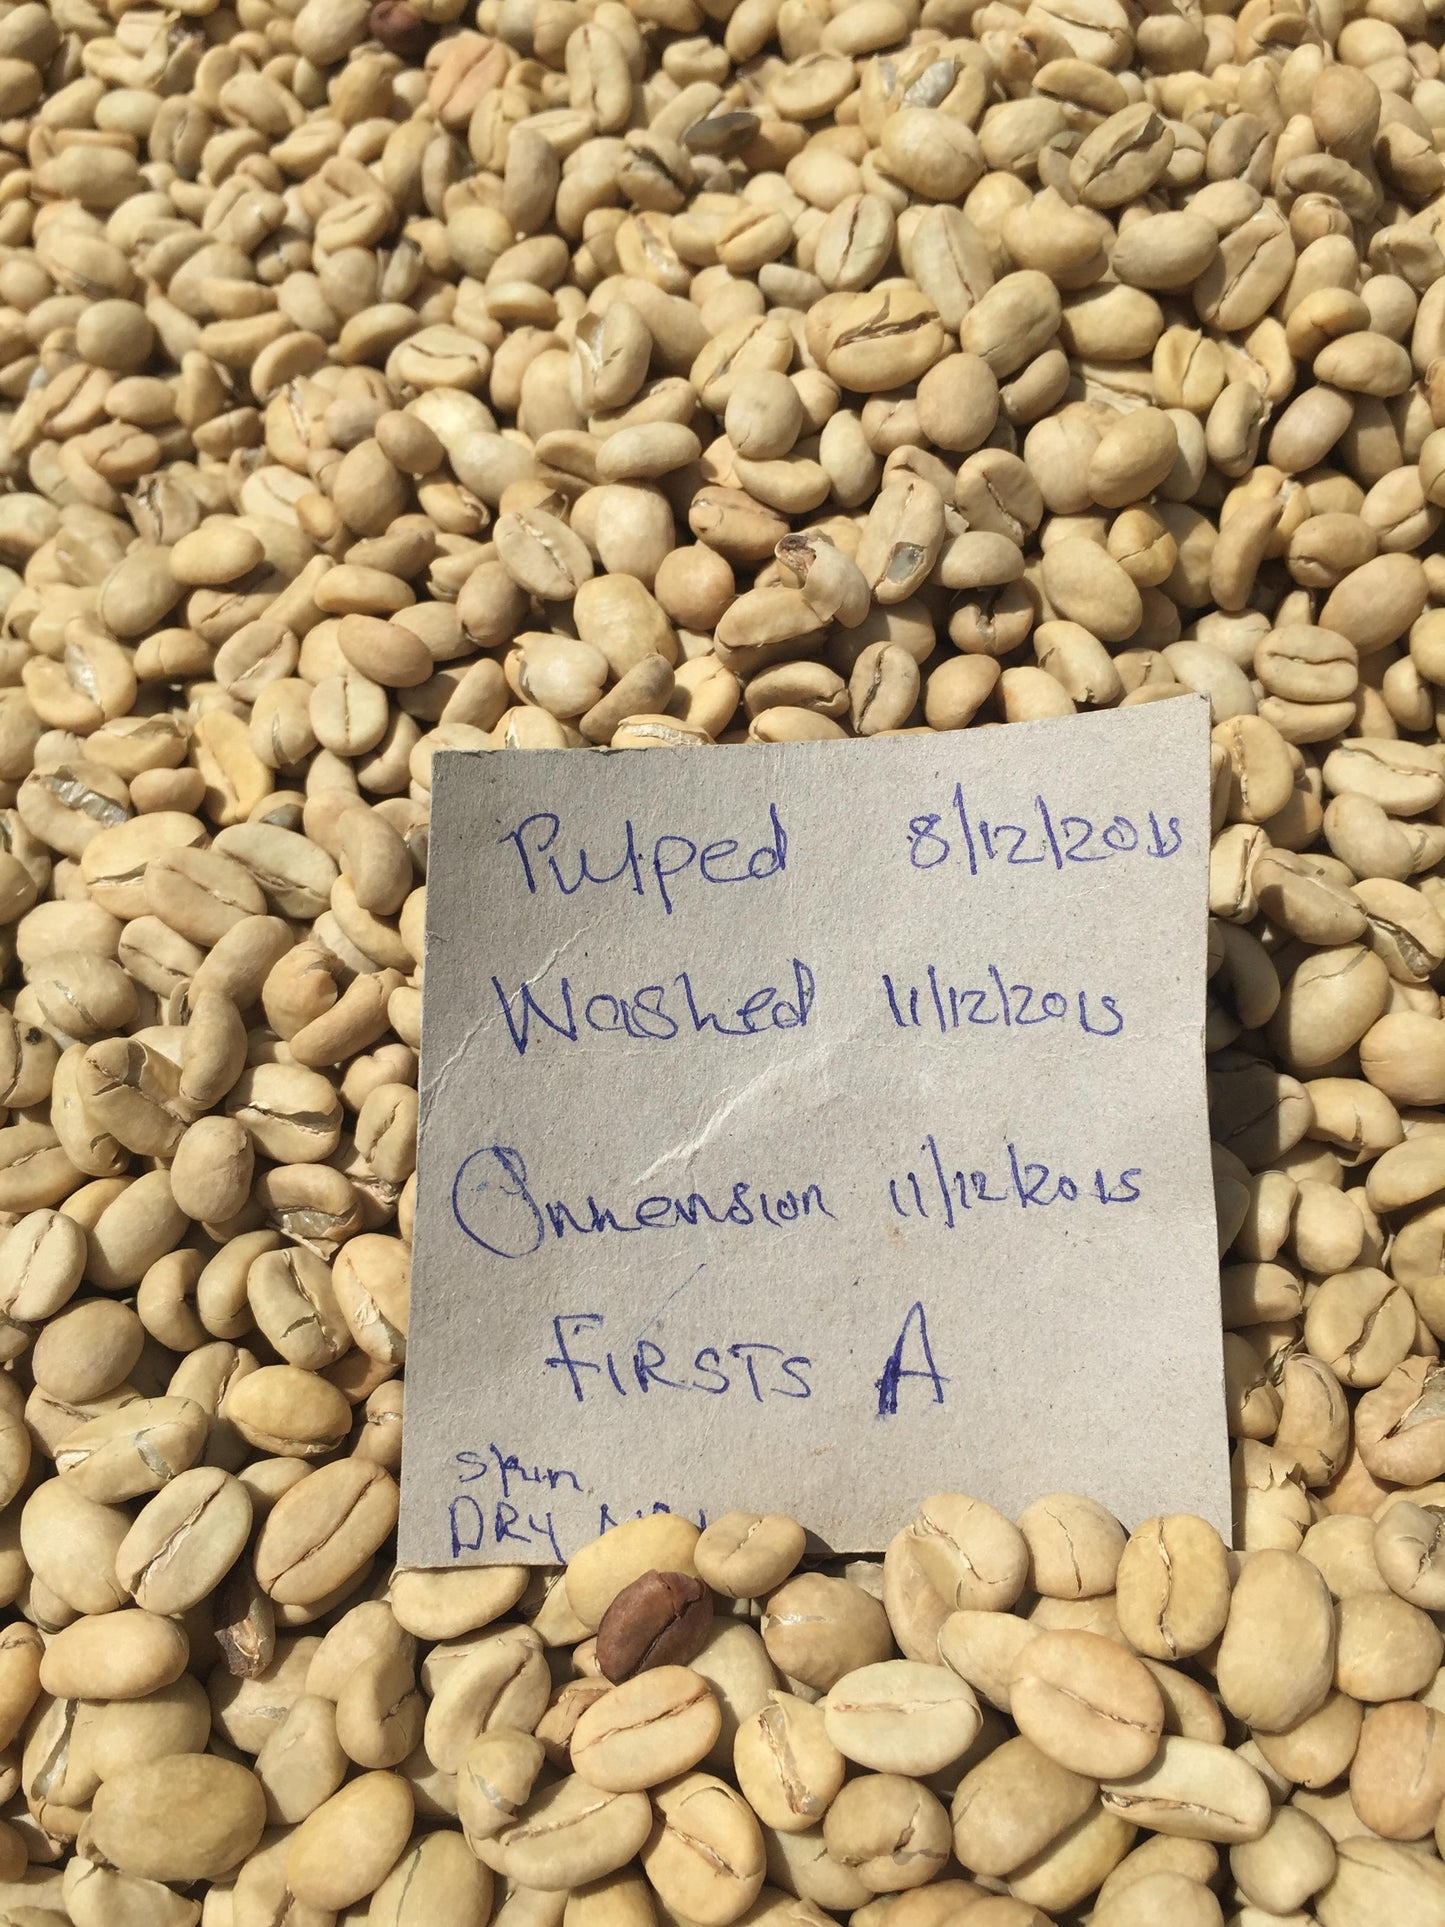 Pulped 8/12/2015
Washed 11/12/2015
11/12/2015
FIRSTS A
skin
DRY